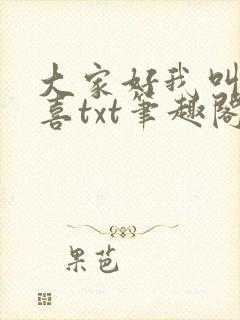 大家好我叫
喜txt笔趣阁
果芭